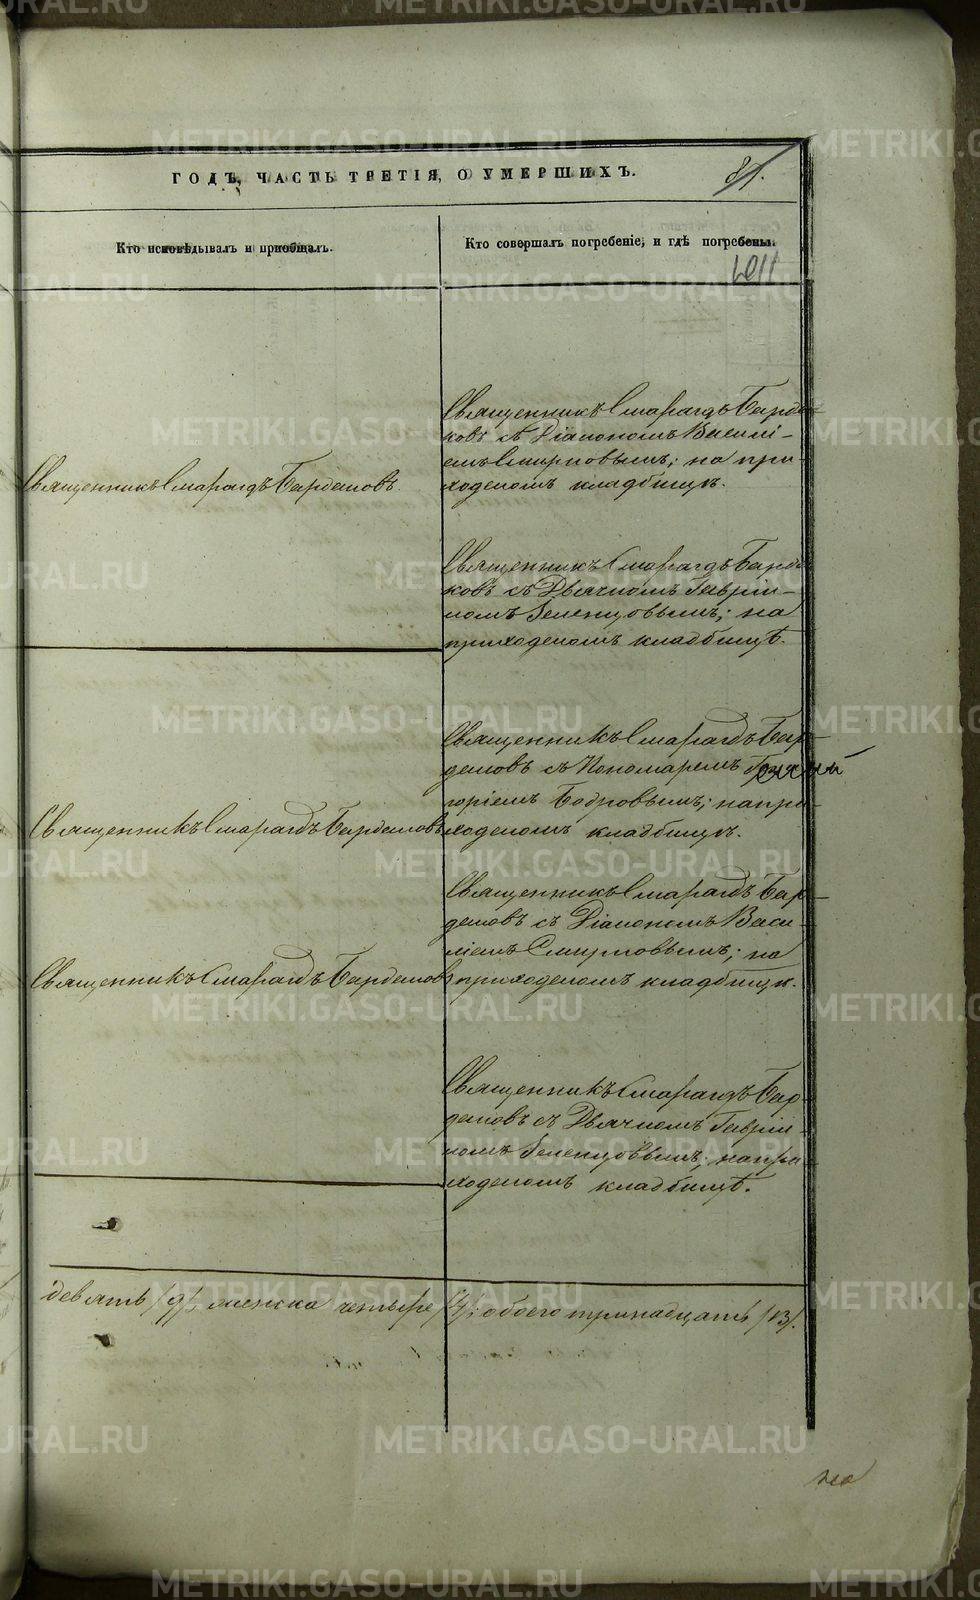 ГОДЪ, ЧАСТЬ ТРЕТІЯ, О УМЕРШИХЪ.
81.
Кто исповѣдывалъ и пріобщалъ.
Кто совершалъ погребеніе, и гдѣ погребены.
Священникъ Смарагдъ Бардаковъ.
Священникъ Смарагдъ Барда-
ковъ съ Діакономъ Василі-
емъ Смирновымъ; на при-
ходскомъ кладбищѣ.
Священникъ Смарагдъ Барда-
ковъ съ Дьячкомъ Гаврії-
ломъ Зеленцовымъ; на
приходскомъ кладбищѣ.
Священникъ Смарагдъ Бардаковъ
Священникъ Смарагдъ Бар-
даковъ съ Пономаремъ
горіемъ Бобровымъ; на при-
ходскомъ кладбищѣ.
Священникъ Смарагдъ Бардаковъ
Священникъ Смарагдъ Бар-
даковъ съ Діакономъ Васи-
ліемъ Смирновымъ; на
приходскомъ кладбищѣ.
Священникъ Смарагдъ Бар-
даковъ съ Дьячкомъ Гаврії-
ломъ Зеленцовымъ; на при-
ходскомъ кладбищѣ.
девять /9/, женска четыре /4/; обоего тринадцать /13/.
METRIKI.GASO-URAL.RU